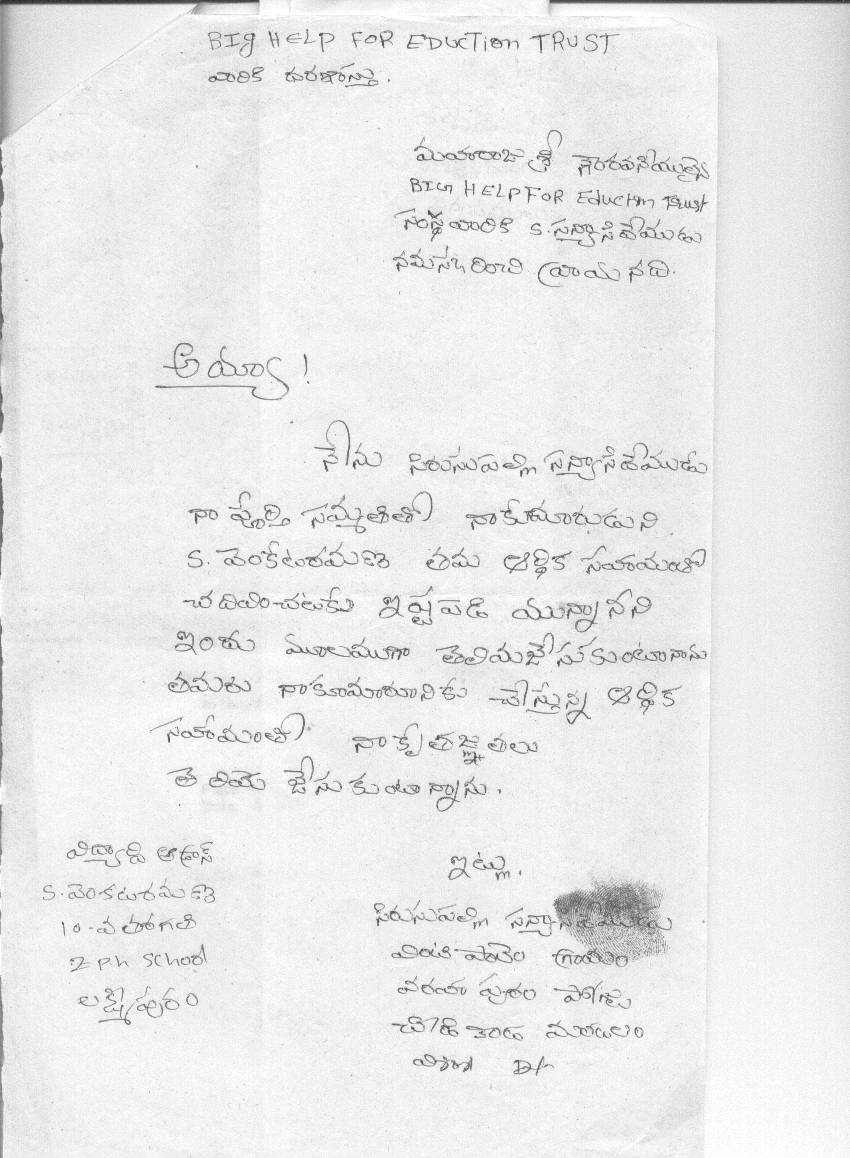 BIg HELP FOR EDUCTion TRUST
వారికి దరఖాస్తు.
మహారాజ శ్రీ గౌరవనీయులైన
BIG HELP FOR Eductin Trust
సంస్థ వారికి S. సన్యాసిదేముడు
నమస్కరించి వ్రాయునది.
అయ్యా!
నేను సిరుసుపల్లి సన్యాసిదేముడు
నా పూర్తి సమ్మతితో నాకుమారుడుని
S. వెంకటరమణ తమ ఆర్థిక సహయంతో
చదివించుటకు ఇష్టపడి యున్నానని
ఇందు మూలముగా తెలియజేసుకుంటూనాను
తమరు నాకూమారూనికు చేస్తున్న ఆర్థిక
సహాయంతో నా కృతజ్ఞతలు
తెలియ జేసుకుంటాన్నాను.
విద్యార్ధి అడ్రాస్
S. వెంకటరమణ
10-వ తరగతి
Z Ph School
లక్ష్మిపురం
ఇట్లు,
సిరుసుపల్లి సన్యాసిదేముడు
వింటి పాలెం గ్రామం
వరహా పురం పోస్టు
చోడికండ మండలం
విశాఖ D/-